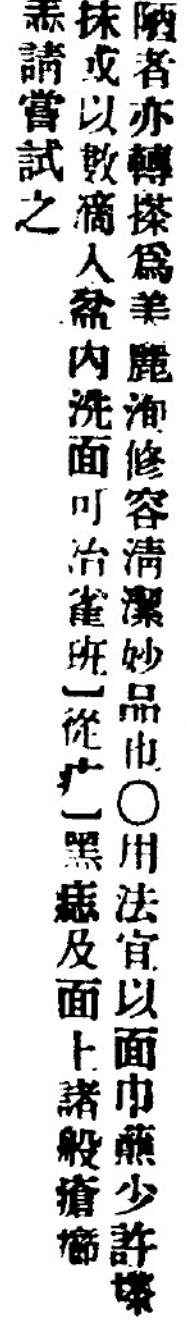 陋者亦轉搽爲美麗洵修容清潔妙品也〇用法宜以面巾蘸少許搽
抹或以數滴人盆內洗面可治雀班〔從疒〕黑痣及面上諸般瘡癤
羔請嘗試之